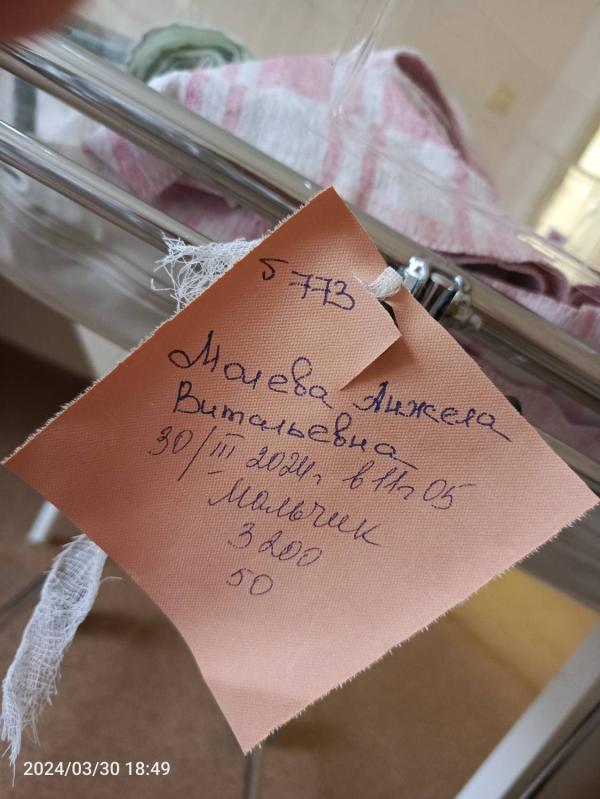 5 773
Молева Анжела
Витальевна
30/III 2024г. в 11ч 05
Мальчик
3200
50
2024/03/30 18:49